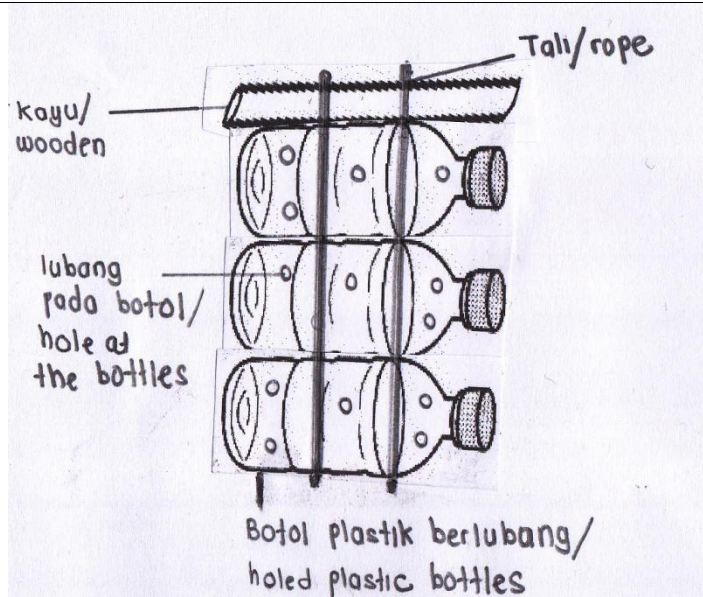 Tali/rope
Kayu/
wooden
lubang
pada botol/
hole at
the bottles
Botol plastik berlubang/
holed plastic bottles